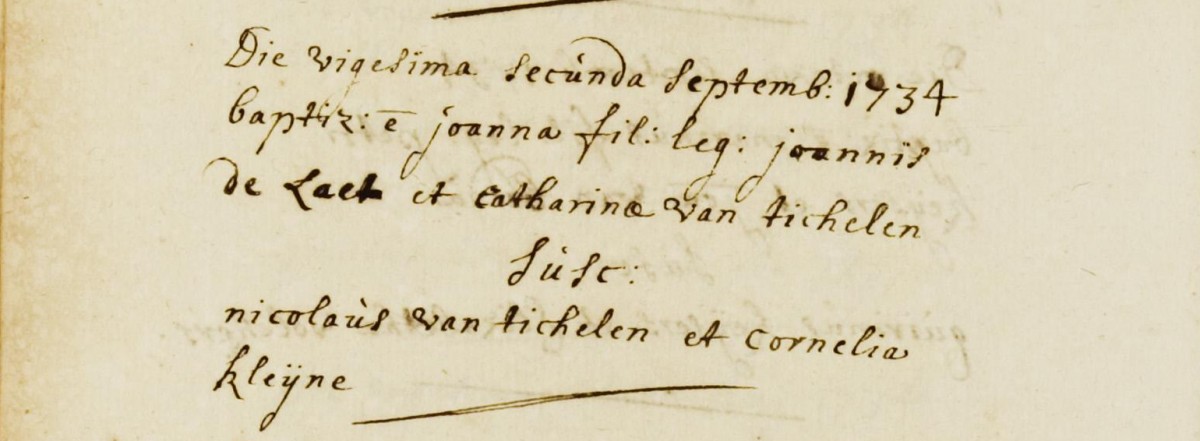 Die vigesima secùnda septemb: 1734
baptiz: ē joanna fil: leg: joannis
de Laet et Catharinæ van tichelen
sùsc:
nicolaùs van tichelen et Cornelia
kleÿne